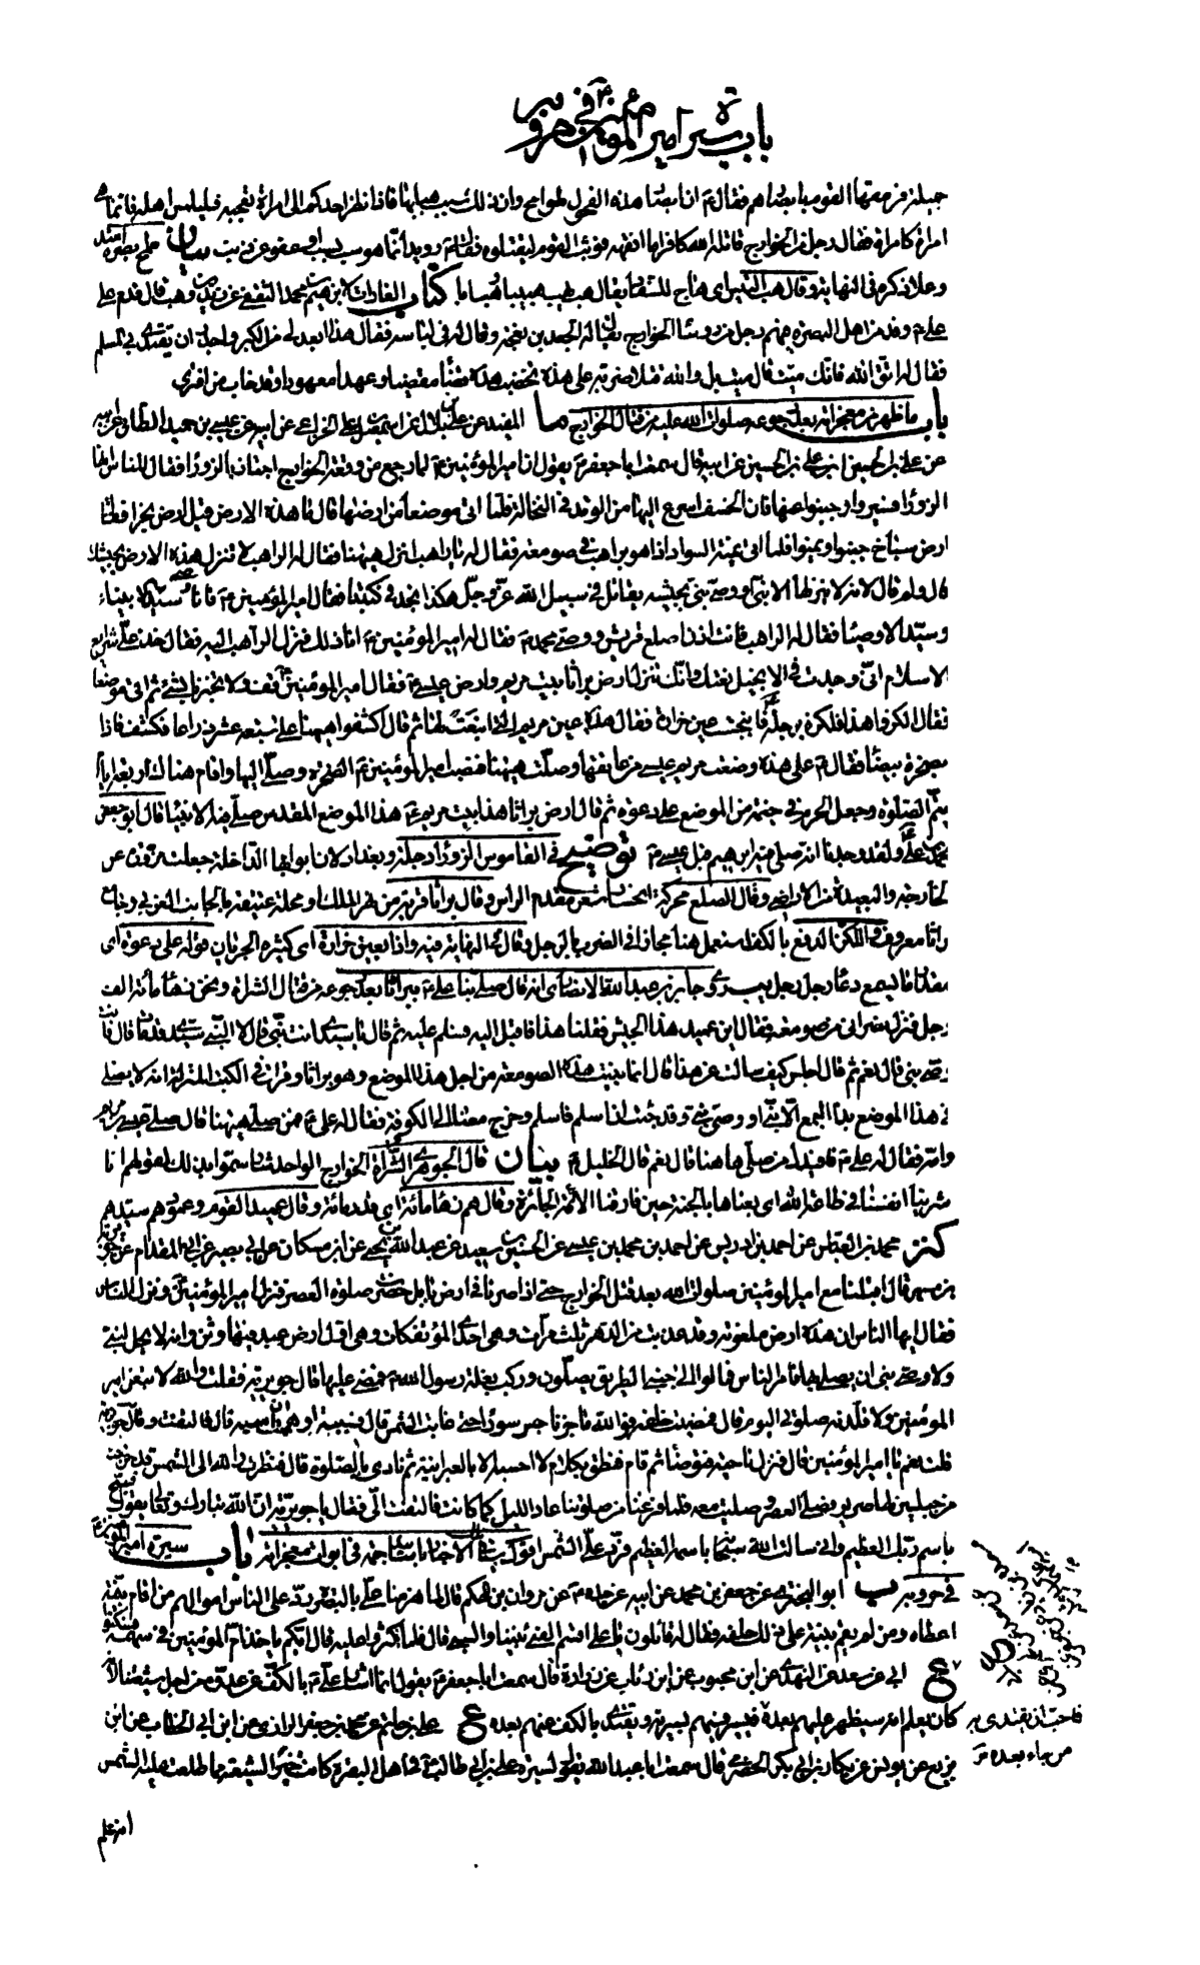 باب سيرة امير المؤمنين ع في حروبه
جميلة فرمقها القوم بابصارهم فقال ع ان ابصار هذه الفحول طوامح وان ذلك سبب هبابها فاذا نظر احدكم الى امراة تعجبه فليلمس اهله فانما هي
امراة كامراة فقال رجل من الخوارج قاتله الله كافرا ما افقهه فوثب القوم ليقتلوه فقال ع رويدا انما هو سب بسب او عفو عن ذنب بيان طمح بصره امتد
وعلا ذكره في النهاية وقال هب التيس اي هاج للسفاد يقال هب يهب هبيبا وهبابا كتاب الغارات لابراهيم بن محمد الثقفي عن زيد بن وهب قال قدم على
علي ع وفد من اهل البصرة فيهم رجل من رؤساء الخوارج يقال له الجعد بن نعجة وقال له في لباسه فقال هذا ابعد لي من الكبر واجدر ان يقتدي بي المسلم
فقال له اتق الله فانك ميت قال ميت بل والله قتلا ضربة على هذه تخضب هذه قضاء مقضيا وعهدا معهودا وقد خاب من افترى
باب ما ظهر من معجزاته بعد رجوعه صلوات الله عليه من قتال الخوارج ما المفيد عن علي بن بلال عن اسمعيل بن علي الخزاعي عن ابيه عن عيسى بن حميد الطائي عن ابيه
عن علي بن الحسين بن علي بن الحسين عن ابيه قال سمعت ابا جعفر ع يقول ان امير المؤمنين ع لما رجع من وقعة الخوارج اجتاز بالزوراء فقال للناس انها
الزوراء فسيروا وجنبوا عنها فان الخسف اسرع اليها من الوتد في النخالة فلما اتى موضعا من ارضها قال ما هذه الارض قيل ارض بحرا فقال
ارض سباخ جنبوا ويمنوا فلما اتى يمنة السواد اذا هو براهب في صومعة فقال له يا راهب انزل ههنا فقال له الراهب لا تنزل هذه الارض بجيشك
قال ولم قال لانه لا ينزلها الا نبي او وصي نبي بجيشه يقاتل في سبيل الله عز وجل هكذا نجد في كتبنا فقال امير المؤمنين ع فانا وصي سيد الانبياء
وسيد الاوصياء فقال له الراهب فانت اذا اصلع قريش ووصي محمد ص فقال له امير المؤمنين ع انا ذلك فنزل الراهب اليه فقال خذ علي شرايع
الاسلام اني وجدت في الانجيل نعتك وانك تنزل ارض براثا بيت مريم وارض عيسى ع فقال امير المؤمنين ع قف ولا تخبرنا بشيء ثم اتى موضعا
فقال الكزوا هذا فلكزه برجله ع فانبجست عين خرارة فقال هذه عين مريم التي انبعت لها ثم قال اكشفوا ههنا على سبعة عشر ذراعا فكشف فاذا
بصخرة بيضاء فقال ع على هذه وضعت مريم عيسى من عاتقها وصلت ههنا فنصب امير المؤمنين ع الصخرة وصلى اليها واقام هناك اربعة ايام
يتم الصلوة وجعل الحرم في خيمة من الموضع على دعوة ثم قال ارض براثا هذا بيت مريم ع هذا الموضع المقدس صلى فيه الانبياء قال ابو جعفر
محمد بن علي ع ولقد وجدنا انه صلى فيه ابراهيم قبل عيسى ع توضيح في القاموس الزوراء دجلة وبغداد لان ابوابها الداخلة جعلت مزورة عن
الخارجة والبعيدة من الاراضي وقال الصلع محركة انحسار شعر مقدم الراس وقال براثا قرية من نهر الملك او محلة عتيقة بالجانب الغربي وجامع
براثا معروف واللكز الدفع بالكف استعمل هنا مجازا في الضرب بالرجل وقال في النهاية فيه واذا بعين خرارة اى كثيرة الجريان قوله على دعوة اى
مقدار ما يسمع دعاء رجل رجل يب روي جابر بن عبد الله الانصاري انه قال صلى بنا علي ع ببراثا بعد رجوعه من قتال الشراة ونحن زهاء مائة الف
رجل فنزل نصراني من صومعته فقال اين عميد هذا الجيش فقلنا هذا فاقبل اليه وسلم عليه ثم قال يا سيدي انت نبي قال لا النبي سيدي قد مات قال فانت
وصي نبي قال نعم ثم قال اجلس كيف سالت عن هذا قال انما بنيت هذه الصومعة من اجل هذا الموضع وهو براثا وقرات في الكتب المنزلة انه لا يصلي
في هذا الموضع بذا الجمع الا نبي او وصي نبي وقد جئت اسلم فاسلم وخرج معنا الى الكوفة فقال له علي ع فمن صلى ههنا قال صلى عيسى بن مريم
وامه فقال له علي ع فافيدك من صلى هاهنا قال نعم قال الخليل ع بيان قال الجوهري الشراة الخوارج الواحد شار سموا بذلك لقولهم انا
شرينا انفسنا في طاعة الله اى بعناها بالجنة حين فارقنا الائمة الجائرة وقال هم زهاء مائة اى قدر مائة وقال عميد القوم وعمودهم سيدهم
كنز محمد بن العباس عن احمد بن ادريس عن احمد بن محمد بن عيسى عن الحسين بن سعيد عن عبد الله بن يحيى عن ابن مسكان عن ابي بصير عن ابي المقدام عن جويرية
بن مسهر قال اقبلنا مع امير المؤمنين صلوات الله بعد قتل الخوارج حتى اذا صرنا في ارض بابل حضرت صلوة العصر فنزل امير المؤمنين ع ونزل الناس
فقال ايها الناس ان هذه ارض ملعونة وقد عذبت من الدهر ثلث مرات وهي احدى المؤتفكات وهي اول ارض عبد فيها وثن وانه لا يحل لنبي
ولا وصي نبي ان يصلي بها فامر الناس فمالوا الى جنبي الطريق يصلون وركب بغلة رسول الله ص فمضى عليها قال جويرية فقلت والله لاتبعن امير
المؤمنين ولاقلدنه صلوتي اليوم قال فمضيت خلفه فوالله ما جزنا جسر سوراء حتى غابت الشمس قال فسببته او هممت ان اسبه قال فالتفت وقال جويرية
قلت نعم يا امير المؤمنين قال فنزل ناحية فتوضا ثم قام فنطق بكلام لا احسبه الا بالعبرانية ثم نادى بالصلوة قال فنظرت والله الى الشمس قد خرجت
من جبلين لها صرير فصلى العصر وصليت معه فلما فرغنا من صلوتنا عاد الليل كما كانت فالتفت الي فقال يا جويرية ان الله تبارك وتعالى يقول فسبح
باسم ربك العظيم واني سالت الله سبحانه باسمه العظيم فرد علي الشمس باب سيرة امير المؤمنين ع
في حروبه ب ابو البختري عن جعفر بن محمد عن ابيه عن جده ع عن مروان بن الحكم قال لما هزمنا علي بالبصرة رد على الناس اموالهم من اقام بينة
اعطاه ومن لم يقم بينة على ذلك حلفه فقال له قائلون يا علي اقسم الفيء بيننا والسبي قال فلما اكثروا عليه قال ايكم ياخذ ام المؤمنين في سهمه فسكتوا
ع ابي عن سعد عن النهدي عن ابن محبوب عن ابن رئاب عن زرارة قال سمعت ابا جعفر ع يقول انما اشار علي ع بالكف عن عدوه من اجل شيعتنا لانه
كان يعلم انه سيظهر عليهم بعده فيسير فيهم بسيرته ويقتدي بالكف عنهم بعده ع علي بن حاتم عن محمد بن جعفر الرازي عن ابن ابي الخطاب عن ابن
بزيع عن يونس عن بكار بن ابي بكر الحضرمي قال سمعت ابا عبد الله يقول لسيرة علي بن ابي طالب ع في اهل البصرة كانت خيرا لشيعته مما طلعت عليه الشمس
فاحب ان يقتدي به
من جاء بعده
انه علم